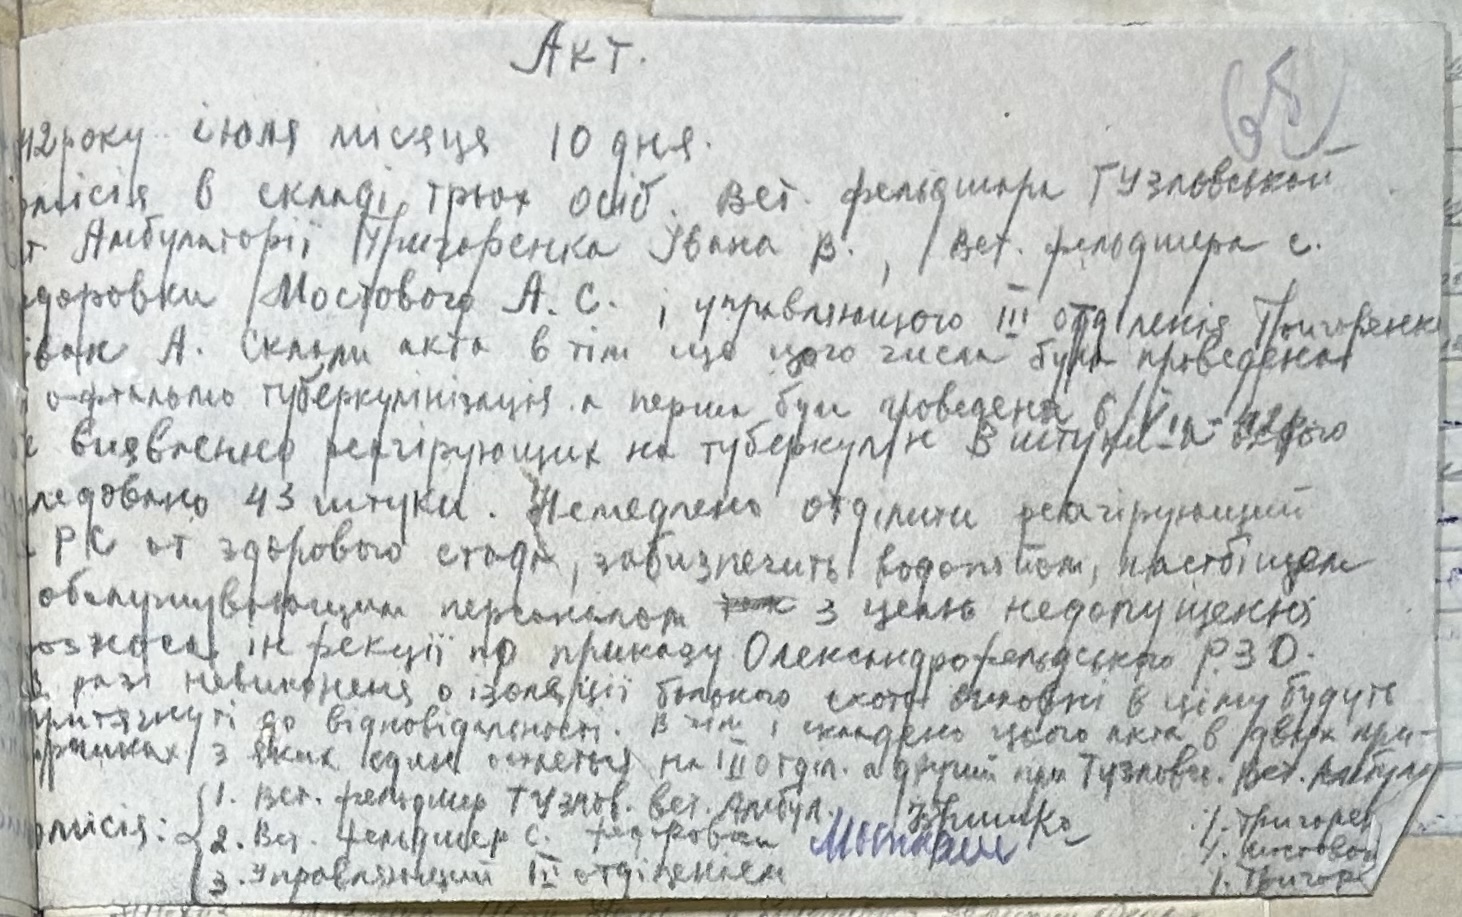 Акт.
65
42 року іюля місяця 10 дня.
омісія в складі трьох осіб. Вет. фельдшора Тузловської
т Амбулаторії Григоренка Івана В., Вет. фельдшера с.
доровки Мостового А. С. і управляющого III отділенія Григоренка
Іван А. Склали акта в тім що цього числа була проведена
офтальмо туберкулінізація а перша були проведена 6/VII-42р.
виявленно реагірующих на туберкулін 3 штуки а всього
ледовано 43 штуки. Немедлено отділити реагірующий
РС от здорового стада, забизпечить водопійом, пастбіщем
обслуживающим персоналом з целью недопущенні
розноса інфекції по приказу Олександрофельдського РЗО.
В разі невиконеня о ізоляції больного скота виновні в цьому будуть
притягнуті до відповідальності. В чім і складено цього акта в двох при-
мірниках з яких один остається на III отділ. а другий при Тузловск. Вет. Амбула
омісія: 1. Вет. фельдшер Тузлов. вет. Амбул. 1. Григорен
2. Вет. фельдшер с. Федоровки Мостовий 2. Мостовой
3. Управляющий III отділенієм 1. Григоре